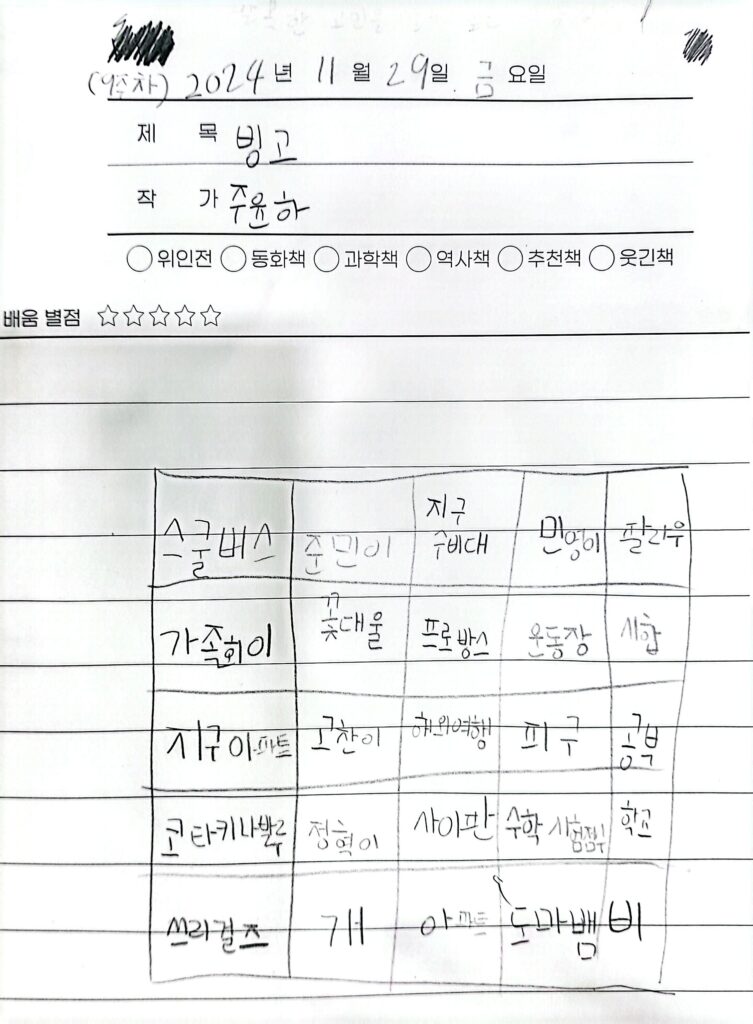 (9주차) 2024년 11월 29일 금요일
제 목 빙고
작 가 주윤하
위인전 동화책 과학책 역사책 추천책 웃긴책
배움 별점 ☆☆☆☆☆
스쿨버스 준민이 지구수비대 민영이 팔라우
가족회이 꽃대울 프로방스 운동장 시합
지구아파트 공찬이 해외여행 피구 공부
코타키나발루 정혁이 사이판 수학시험점수 학교
쓰리걸즈 개 아파트 도마뱀 비